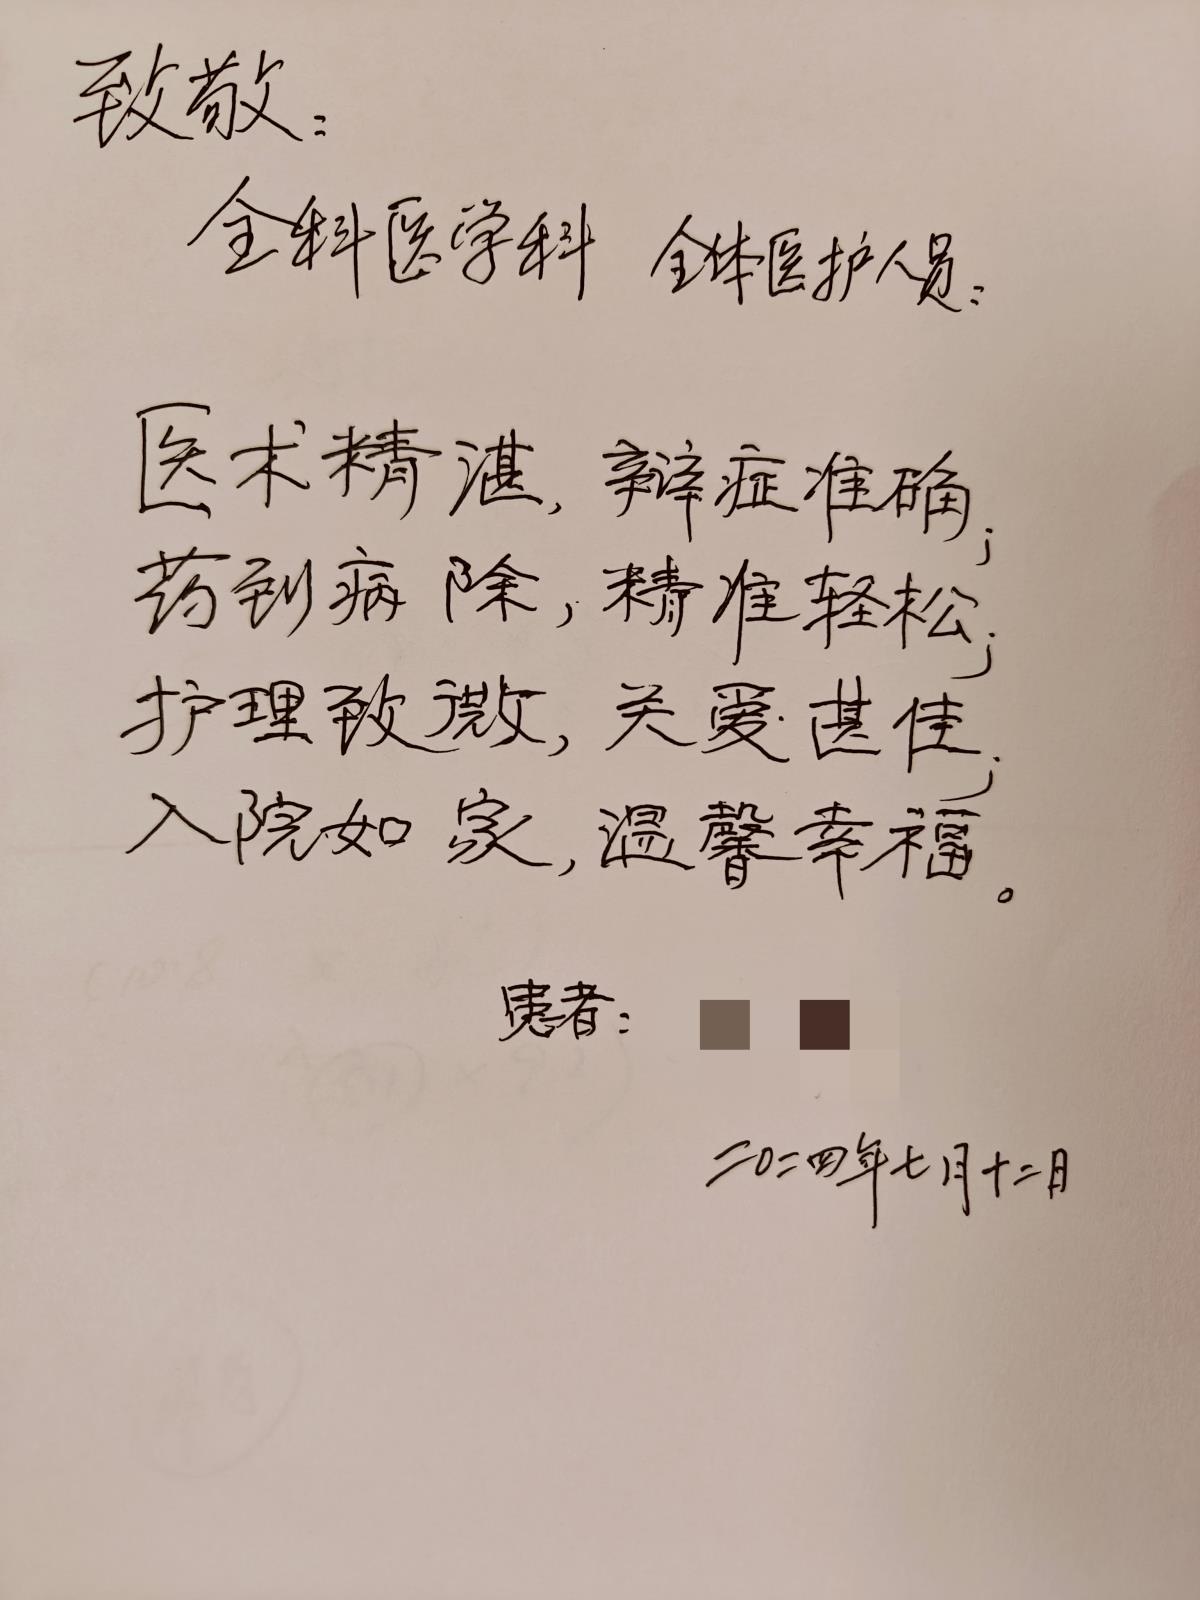 致敬：
全科医学科 全体医护人员：
医术精湛，辩症准确；
药到病除，精准轻松；
护理致微，关爱甚佳；
入院如家，温馨幸福。
患者：
二〇二四年七月十二日